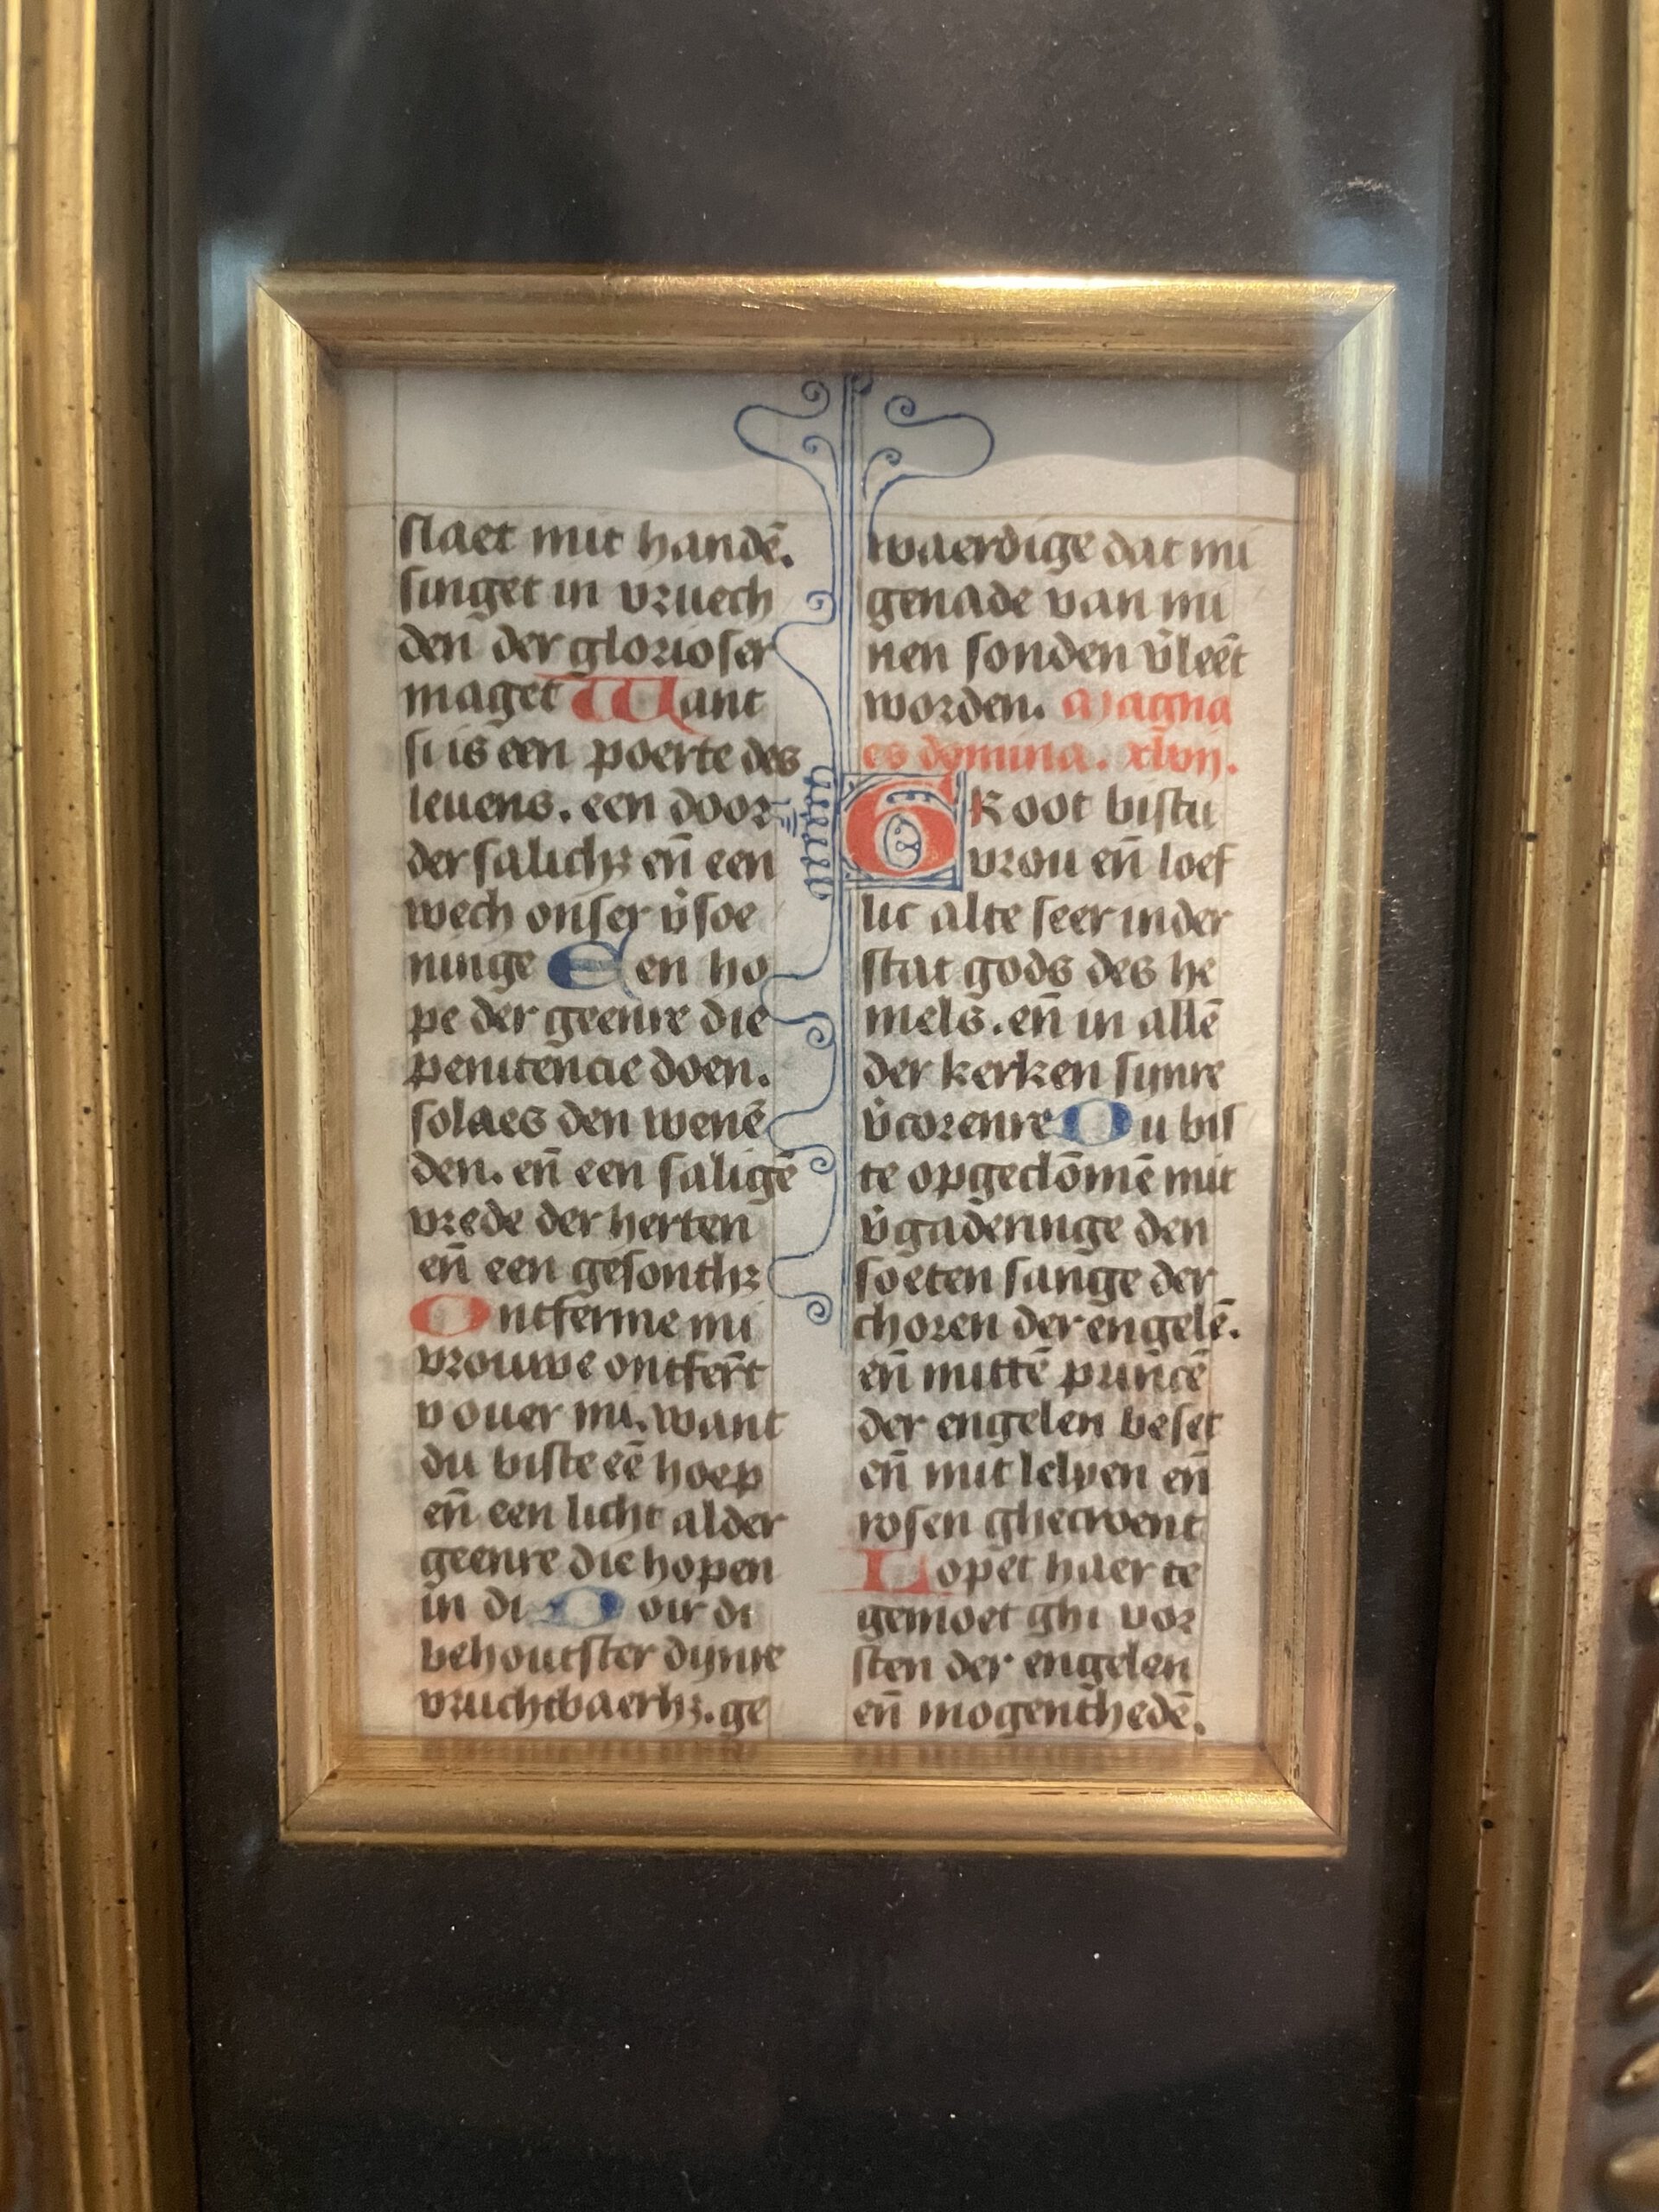 slaet mit handē.
singet in vruech
den der glorioser
maget Want
si is een poerte des
leuens. een door
der salichꝫ en̄ een
wech onser v̉soe
ninge Een ho
pe der geenre die
penitencie doen.
solaes den wenē
den. en̄ een saligē
vrede der herten
en̄ een gesonthꝫ
Ontferme mi
vrouwe ontfer̄t
v ouer mi. want
du biste eē hoep
en̄ een licht alder
geenre die hopen
in di Ouir di
behoutster dynre
vruchtbaerhꝫ. ge
waerdige dat mi
genade van mi
nen sonden v̉leēt
worden. Magna
es domina. xlvij.
GRoot bistu
vrou en̄ loef
lic alte seer inder
stat gods des he
mels. en̄ in allē
der kerken synre
v̉corenre Du bis
te opgeclōmē mit
v̉gaderinge den
soeten sange der
choren der engelē.
en̄ mittē prin̄cē
der engelen beset
en̄ mit lelyen en̄
rosen ghecroent
Lopet haer te
gemoet ghi vor
sten der engelen
en̄ mogenthedē.